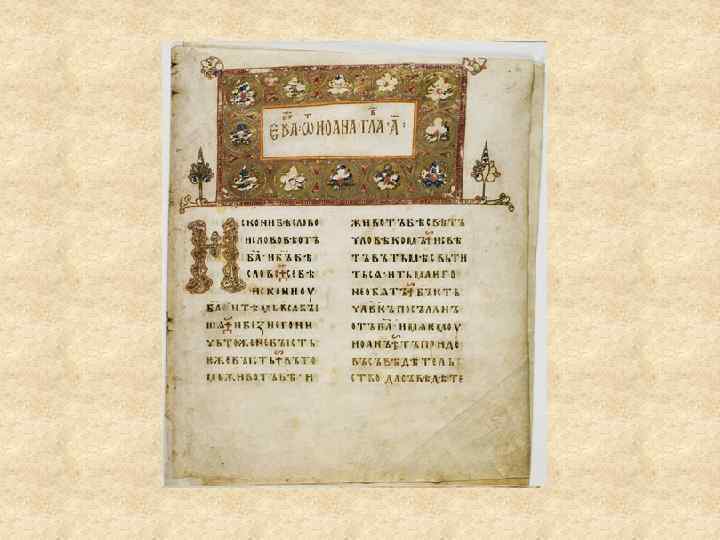 ЕВА · Ѿ ИОАНА ГЛА · А ·
ИСКОНИ БѢ СЛОВО
И СЛОВО БѢ ОТЪ
БА · И БЪ БѢ
СЛОВО + СЕ БѢ
ИСКОНИ ОУ
БА · И ТѢМЬ ВЬСѦ БЫ
ША + И БЕЗ НЕГО НИ
ЧЬТОЖЕ НЕ БЫСТЬ ·
ЕЖЕ БЫСТЬ + ВЪ ТО
МЬ ЖИВОТЪ БѢ · И
ЖИВОТЪ БѢ СВѢТЪ
ЧЛОВѢКОМЪ + И СВѢ
ТЪ ВЪ ТЬМѢ СВЬТИ
ТЬСѦ · И ТЬМА ѤГО
НЕ ОБѦТЪ + БЫСТЬ
ЧЛВКЪ ПОСЪЛАНЪ
ОТЪ БА · ИМѦ ѤМОУ
ИОАНЪ + ТЪ ПРИДЕ
ВЪ СЪВѢДѢТЕЛЬ
СТВО · ДА СЪВѢДѢТЕ